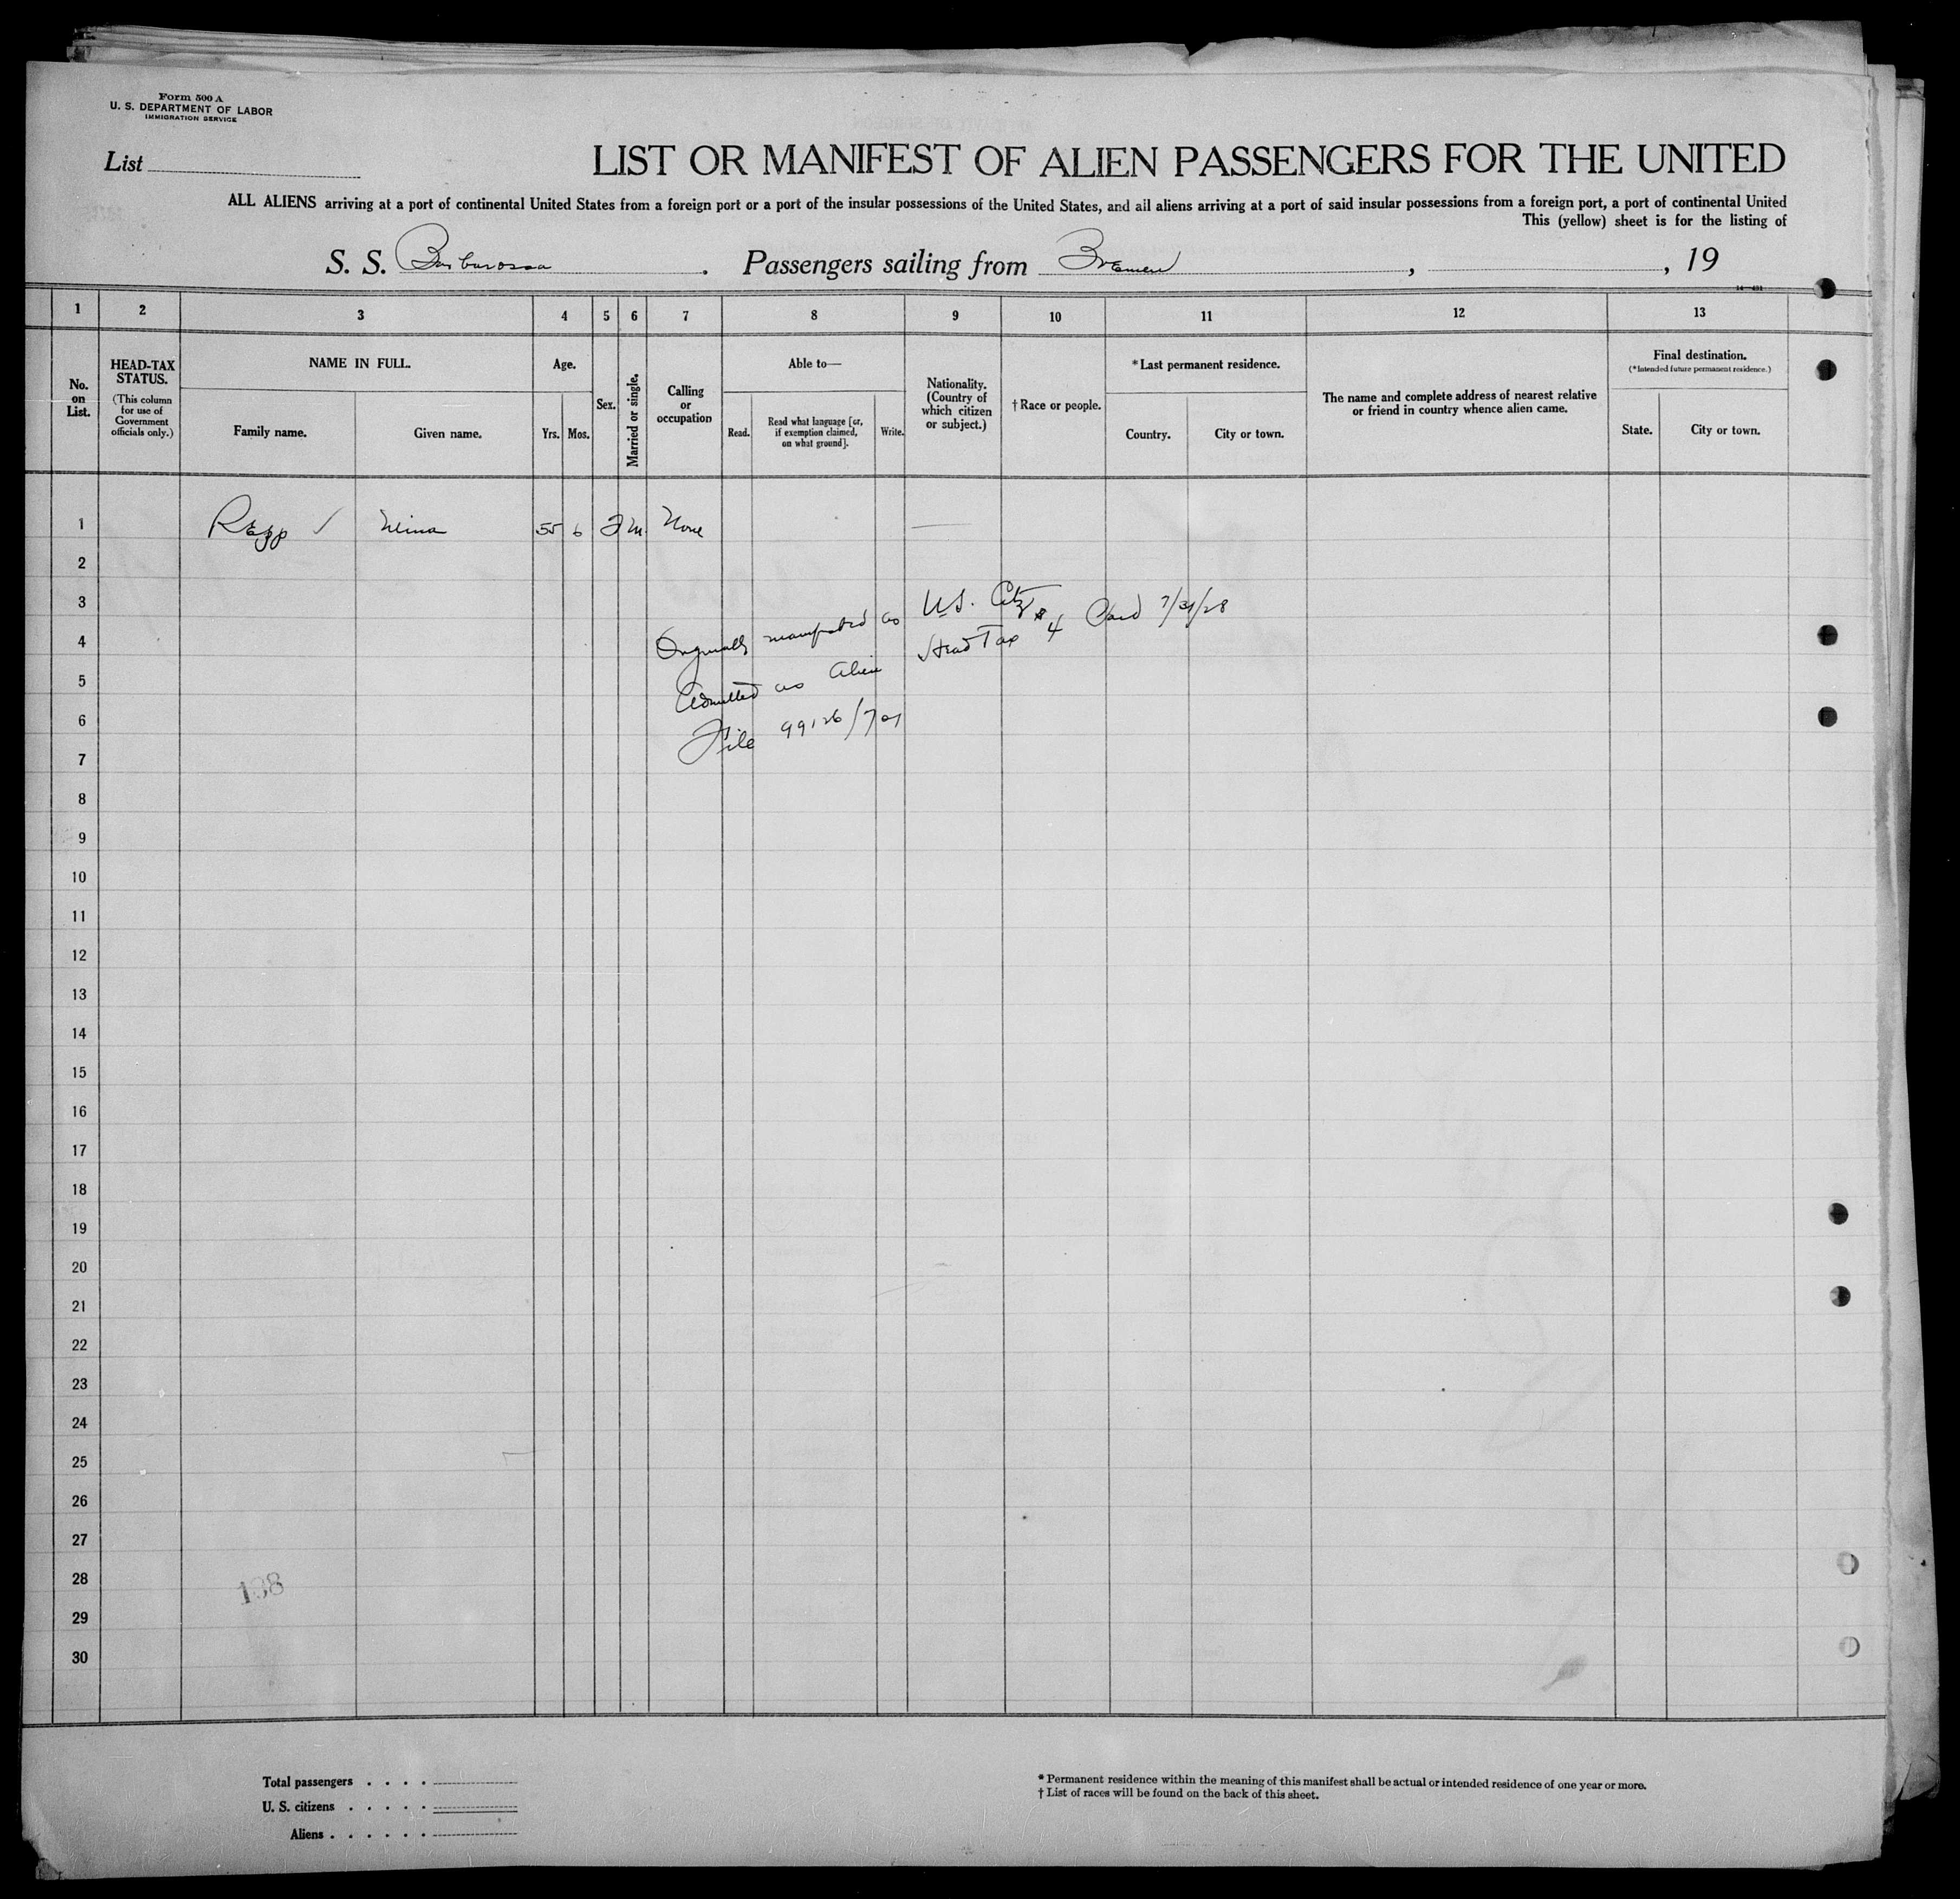 Form 500 A
U. S. DEPARTMENT OF LABOR
IMMIGRATION SERVICE
List
LIST OR MANIFEST OF ALIEN PASSENGERS FOR THE UNITED
ALL ALIENS arriving at a port of continental United States from a foreign port or a port of the insular possessions of the United States, and all aliens arriving at a port of said insular possessions from a foreign port, a port of continental United
This (yellow) sheet is for the listing of
S. S. Barbarossa. Passengers sailing from Bremen, , 19
1 2 3 4 5 6 7 8 9 10 11 12 13
No. on List.
HEAD-TAX STATUS.
(This column for use of Government officials only.)
NAME IN FULL.
Family name. Given name.
Age.
Yrs. Mos.
Sex.
Married or single.
Calling or occupation
Able to—
Read. Read what language [or, if exemption claimed, on what ground]. Write.
Nationality. (Country of which citizen or subject.)
† Race or people.
* Last permanent residence.
Country. City or town.
The name and complete address of nearest relative or friend in country whence alien came.
Final destination.
(* Intended future permanent residence.)
State. City or town.
1 Rapp Mina 55 6 F M None
2
3
Originally manifested as U.S. Citz
4
Admitted as Alien Head Tax $4 Paid 7/31/28
5
6
File 99126/701
7
8
9
10
11
12
13
14
15
16
17
18
19
20
21
22
23
24
25
26
27
28
138
29
30
Total passengers . . . .
U. S. citizens . . . . .
Aliens . . . . . .
* Permanent residence within the meaning of this manifest shall be actual or intended residence of one year or more.
† List of races will be found on the back of this sheet.